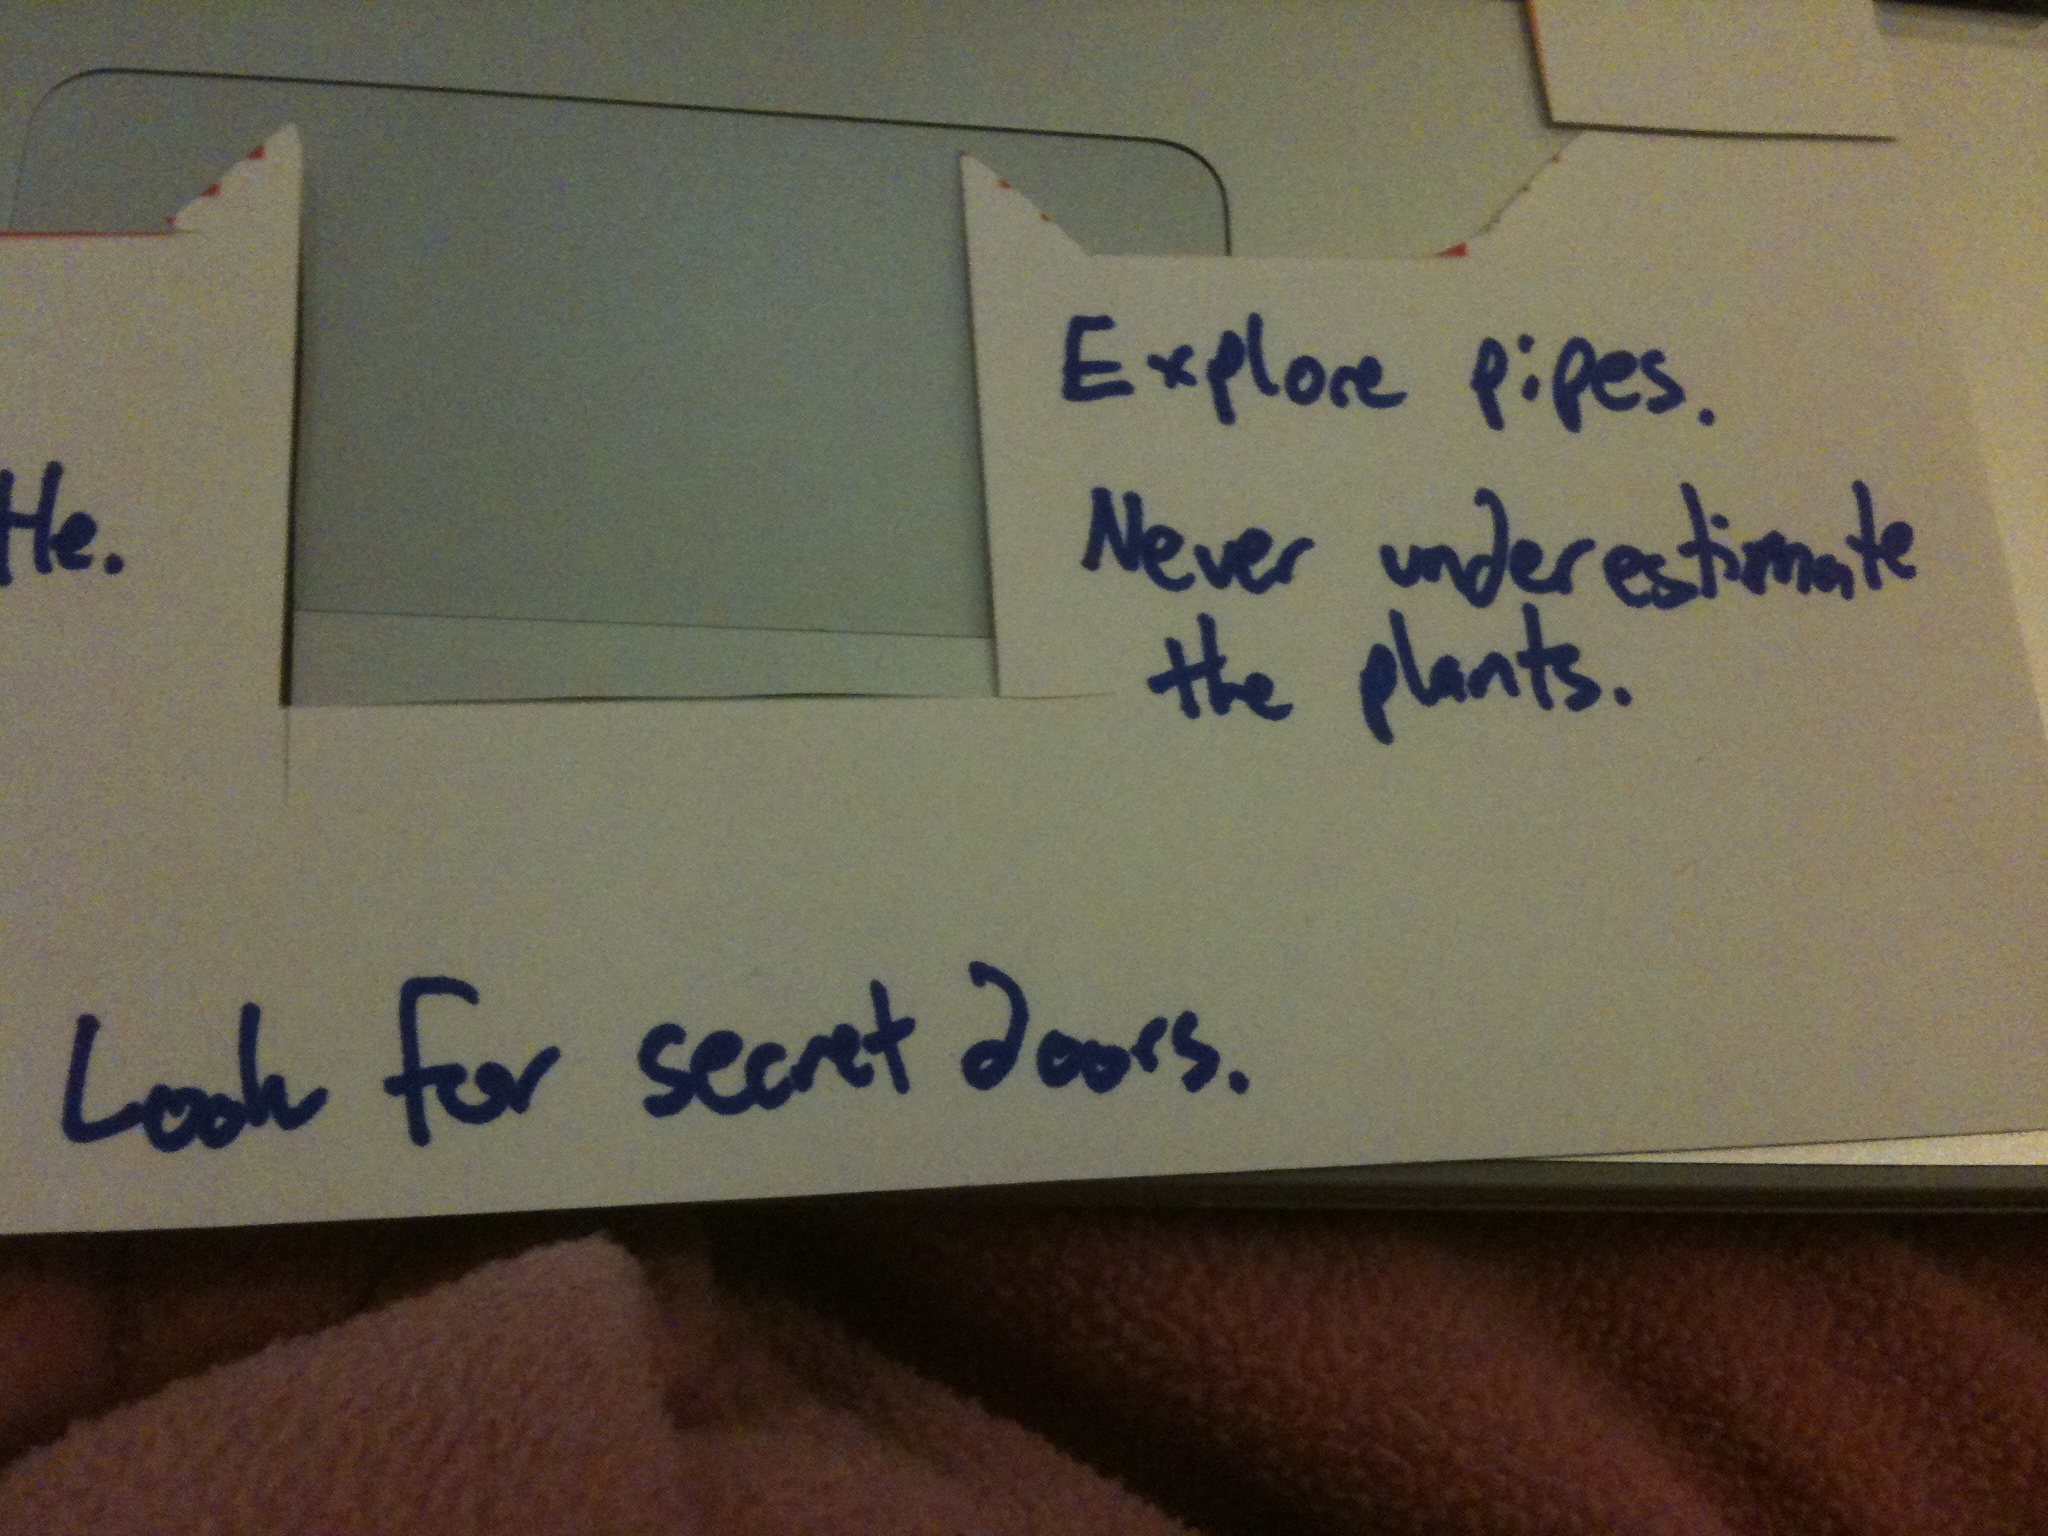 Explore pipes.
Never underestimate
the plants.
Look for secret doors.